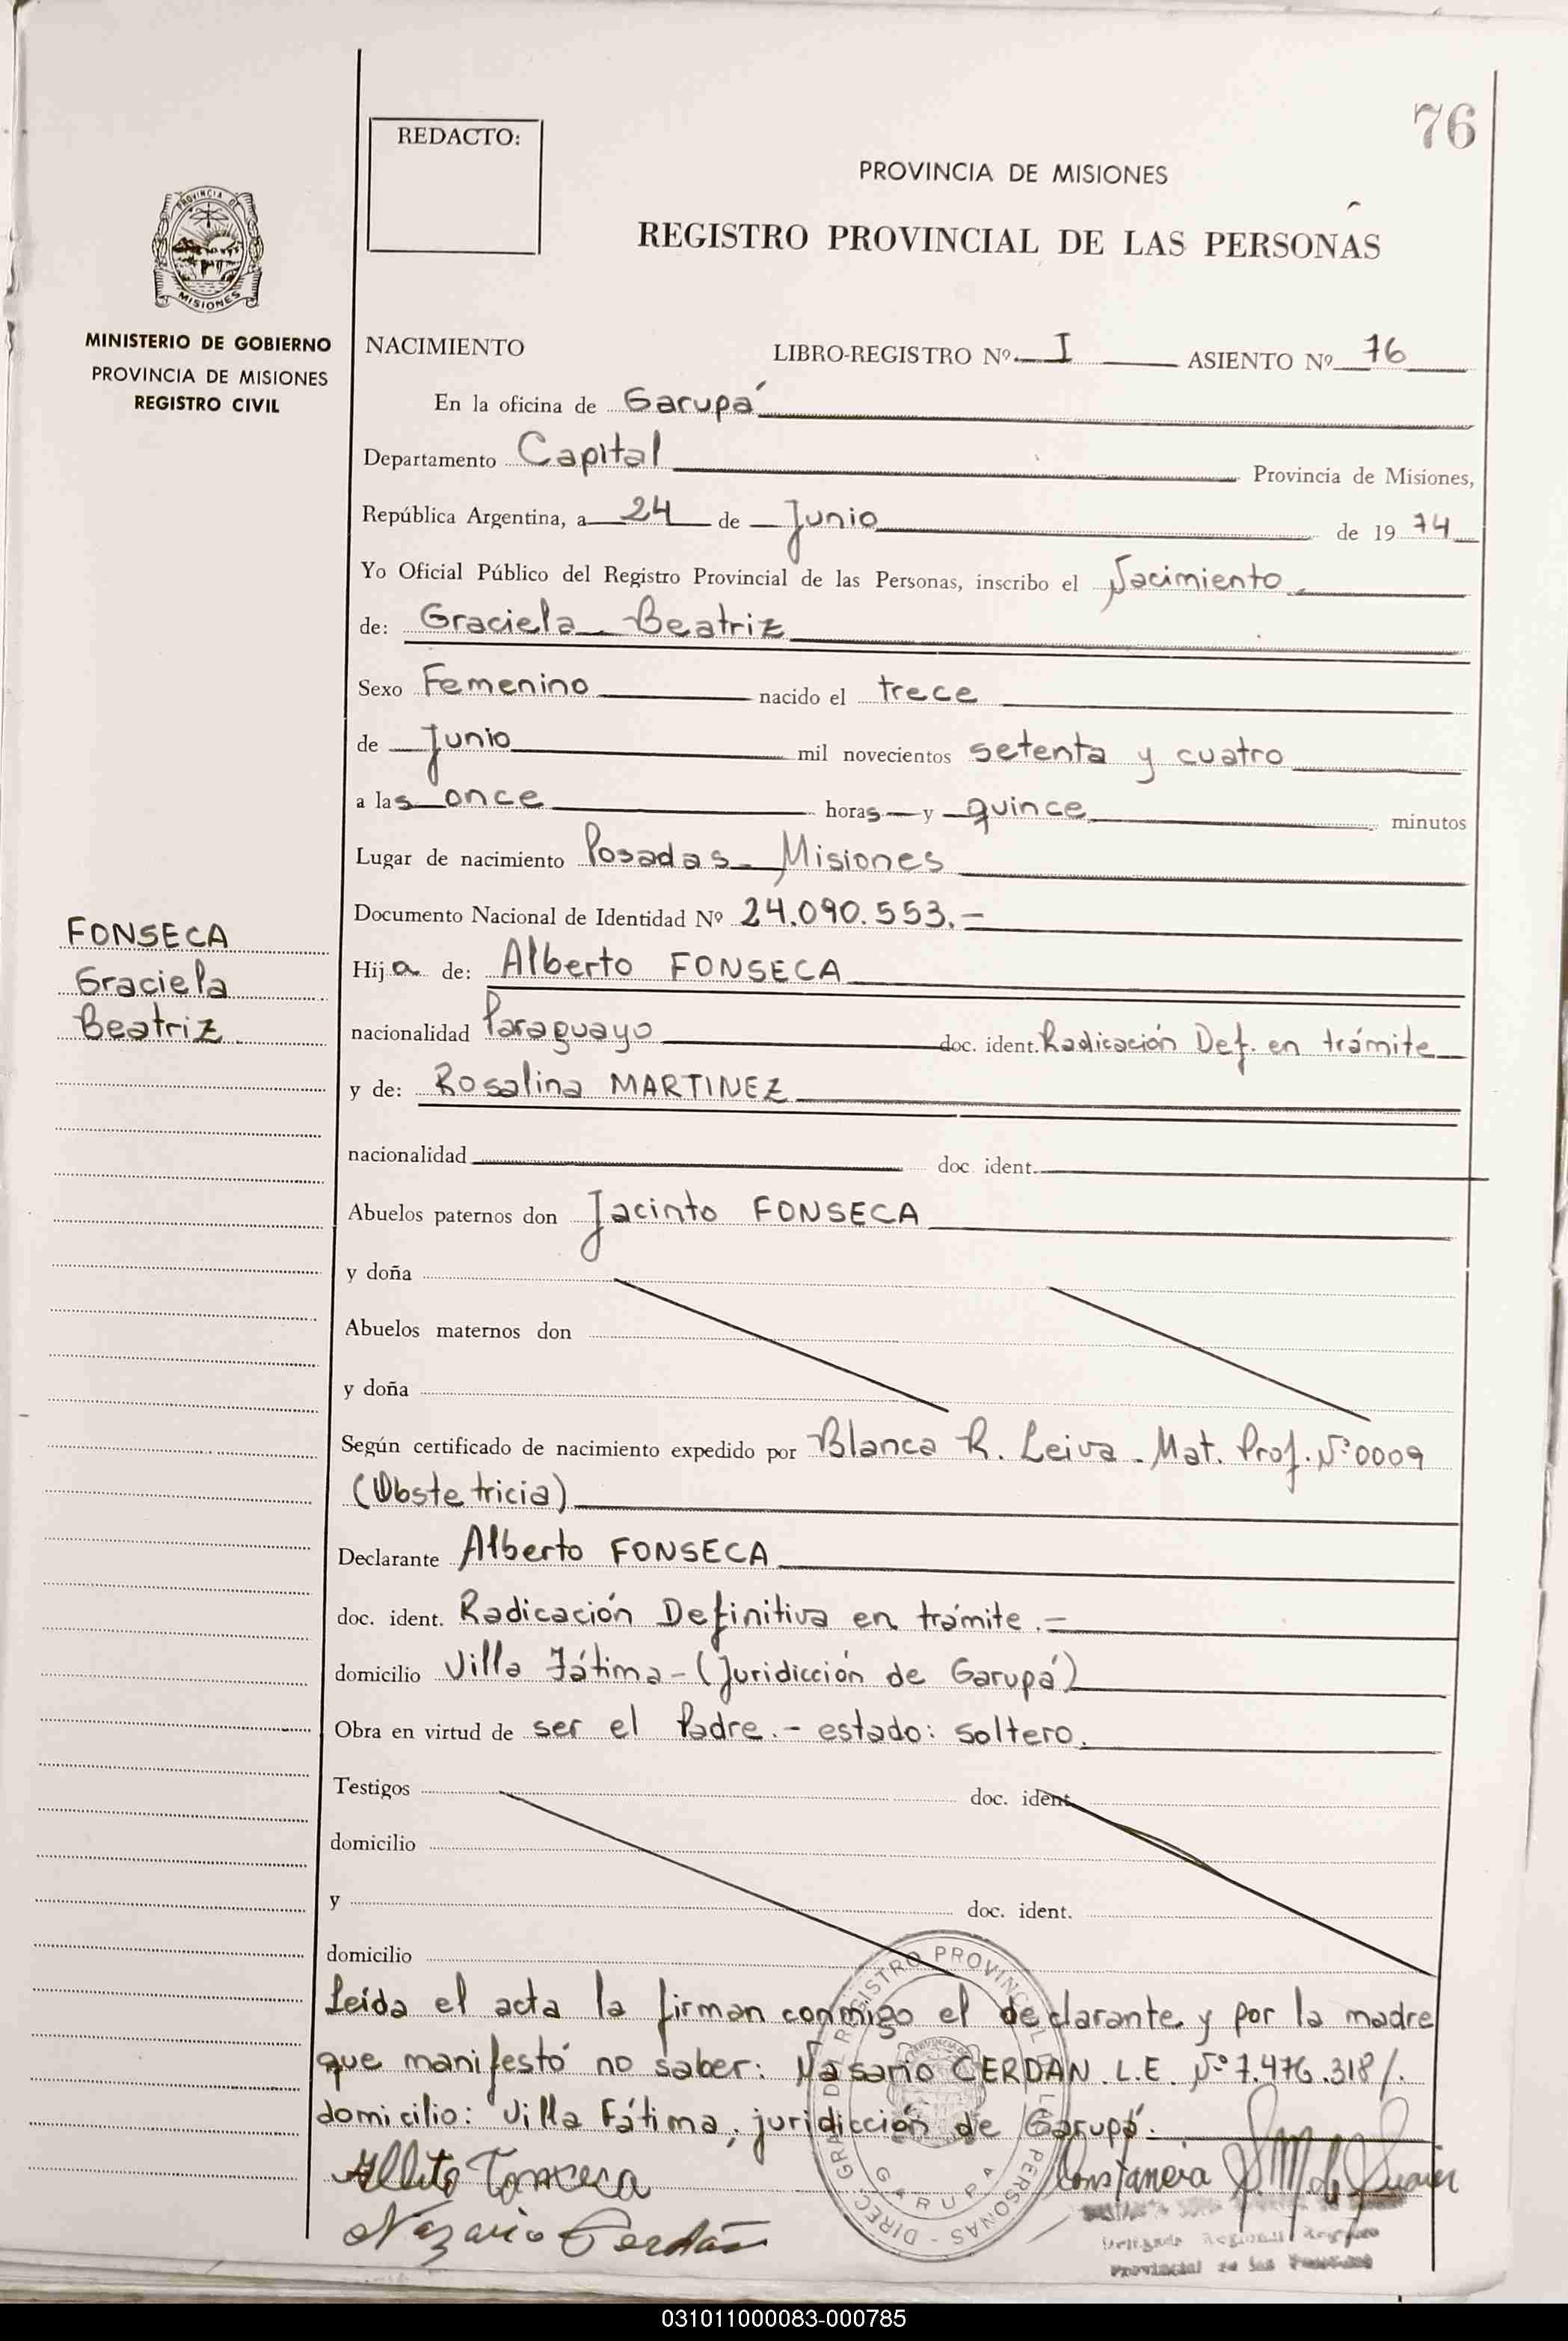 76
REDACTO:
PROVINCIA DE MISIONES
REGISTRO PROVINCIAL DE LAS PERSONAS
PROVINCIA DE
MISIONES
MINISTERIO DE GOBIERNO
PROVINCIA DE MISIONES
REGISTRO CIVIL
NACIMIENTO LIBRO-REGISTRO Nº I ASIENTO Nº 76
En la oficina de Garupá
Departamento Capital Provincia de Misiones,
República Argentina, a 24 de Junio de 1974
Yo Oficial Público del Registro Provincial de las Personas, inscribo el Nacimiento
de: Graciela - Beatriz
Sexo Femenino nacido el trece
de Junio mil novecientos setenta y cuatro
a las once horas y quince minutos
Lugar de nacimiento Posadas - Misiones
Documento Nacional de Identidad Nº 24.090.553.-
FONSECA
Graciela
Beatriz.
Hija de: Alberto FONSECA
nacionalidad Paraguayo doc. ident. Radicación Def. en trámite
y de: Rosalina MARTINEZ
nacionalidad doc. ident.
Abuelos paternos don Jacinto FONSECA
y doña
Abuelos maternos don
y doña
Según certificado de nacimiento expedido por Blanca R. Leiva - Mat. Prof. Nº 0009
(Obstetricia)
Declarante Alberto FONSECA
doc. ident. Radicación Definitiva en trámite.-
domicilio Villa Fátima - (Juridicción de Garupá)
Obra en virtud de ser el Padre.- estado: soltero.
Testigos doc. ident.
domicilio
y doc. ident.
domicilio
Leída el acta la firman conmigo el declarante y por la madre
que manifestó no saber: Nasario CERDAN. L.E. Nº 7.476.318/.
domicilio: Villa Fátima, juridicción de Garupá.
Alberto Fonseca
Nazario Cerdán
Constancia
DIREC. GRAL. DEL REGISTRO PROVINCIAL DE LAS PERSONAS -
GARUPA
Delegada Regional Registro
Provincial de las Personas
031011000083-000785